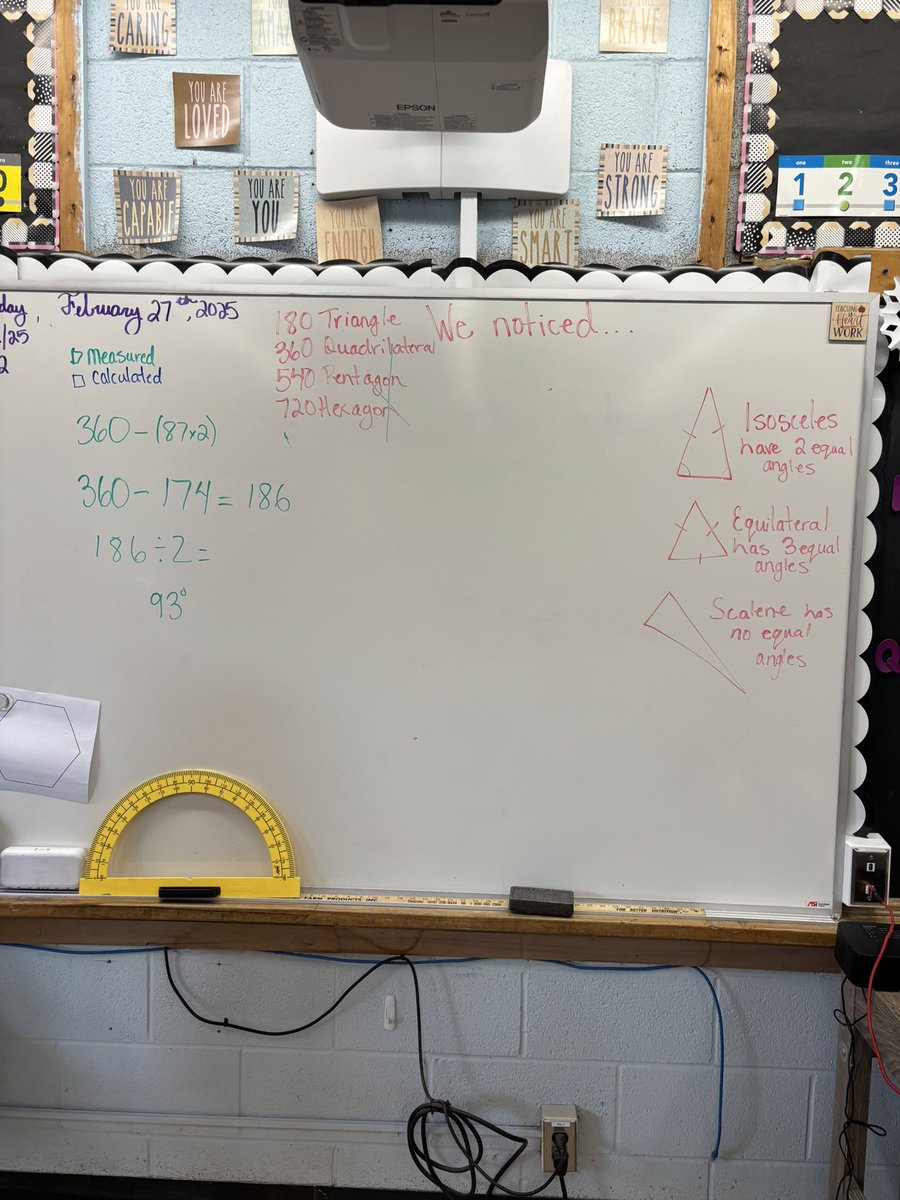 YOU ARE
CARING
YOU ARE
BRAVE
YOU ARE
LOVED
EPSON
YOU ARE
CAPABLE
YOU ARE
YOU
YOU ARE
ENOUGH
YOU ARE
SMART
YOU ARE
STRONG
one two three
1 2 3
day, February 27th, 2025
/25
2
Measured
Calculated
180 Triangle
360 Quadrilateral
540 Pentagon
720 Hexagon
We noticed...
TEACHING
Heart
WORK
360 - (87x2)
360 - 174 = 186
186 ÷ 2 =
93°
Isosceles
have 2 equal
angles
Equilateral
has 3 equal
angles
Scalene has
no equal
angles
90
FARM PRODUCTS INC.
FOR BETTER NUTRITION
ASI